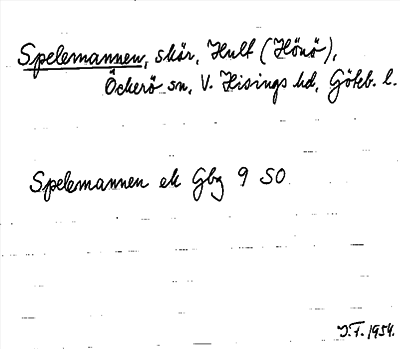 Spelemannen, skär, Hult (Hönö),
Öckerö sn, V. Hisings hd, Göteb. l.
Spelemannen ek Gbg 9 SO
J.F. 1954.